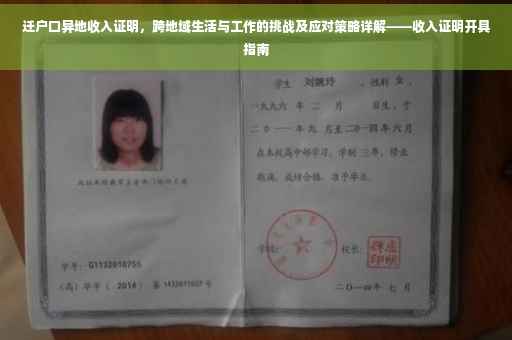 迁户口异地收入证明，跨地域生活与工作的挑战及应对策略详解——收入证明开具
指南
学生 刘婉玲 ，性别 女 ，
一九九六 年 二 月 日生，于
二〇一一年九 月至二〇一四年 六 月
在本校高中部学习，学制 三年，修业
期满，成绩合格，准予毕业。
学校：
校长：
学号： G1132010755
（高）毕字（ 2014 ）第 1432011607 号
二〇一四年 七 月